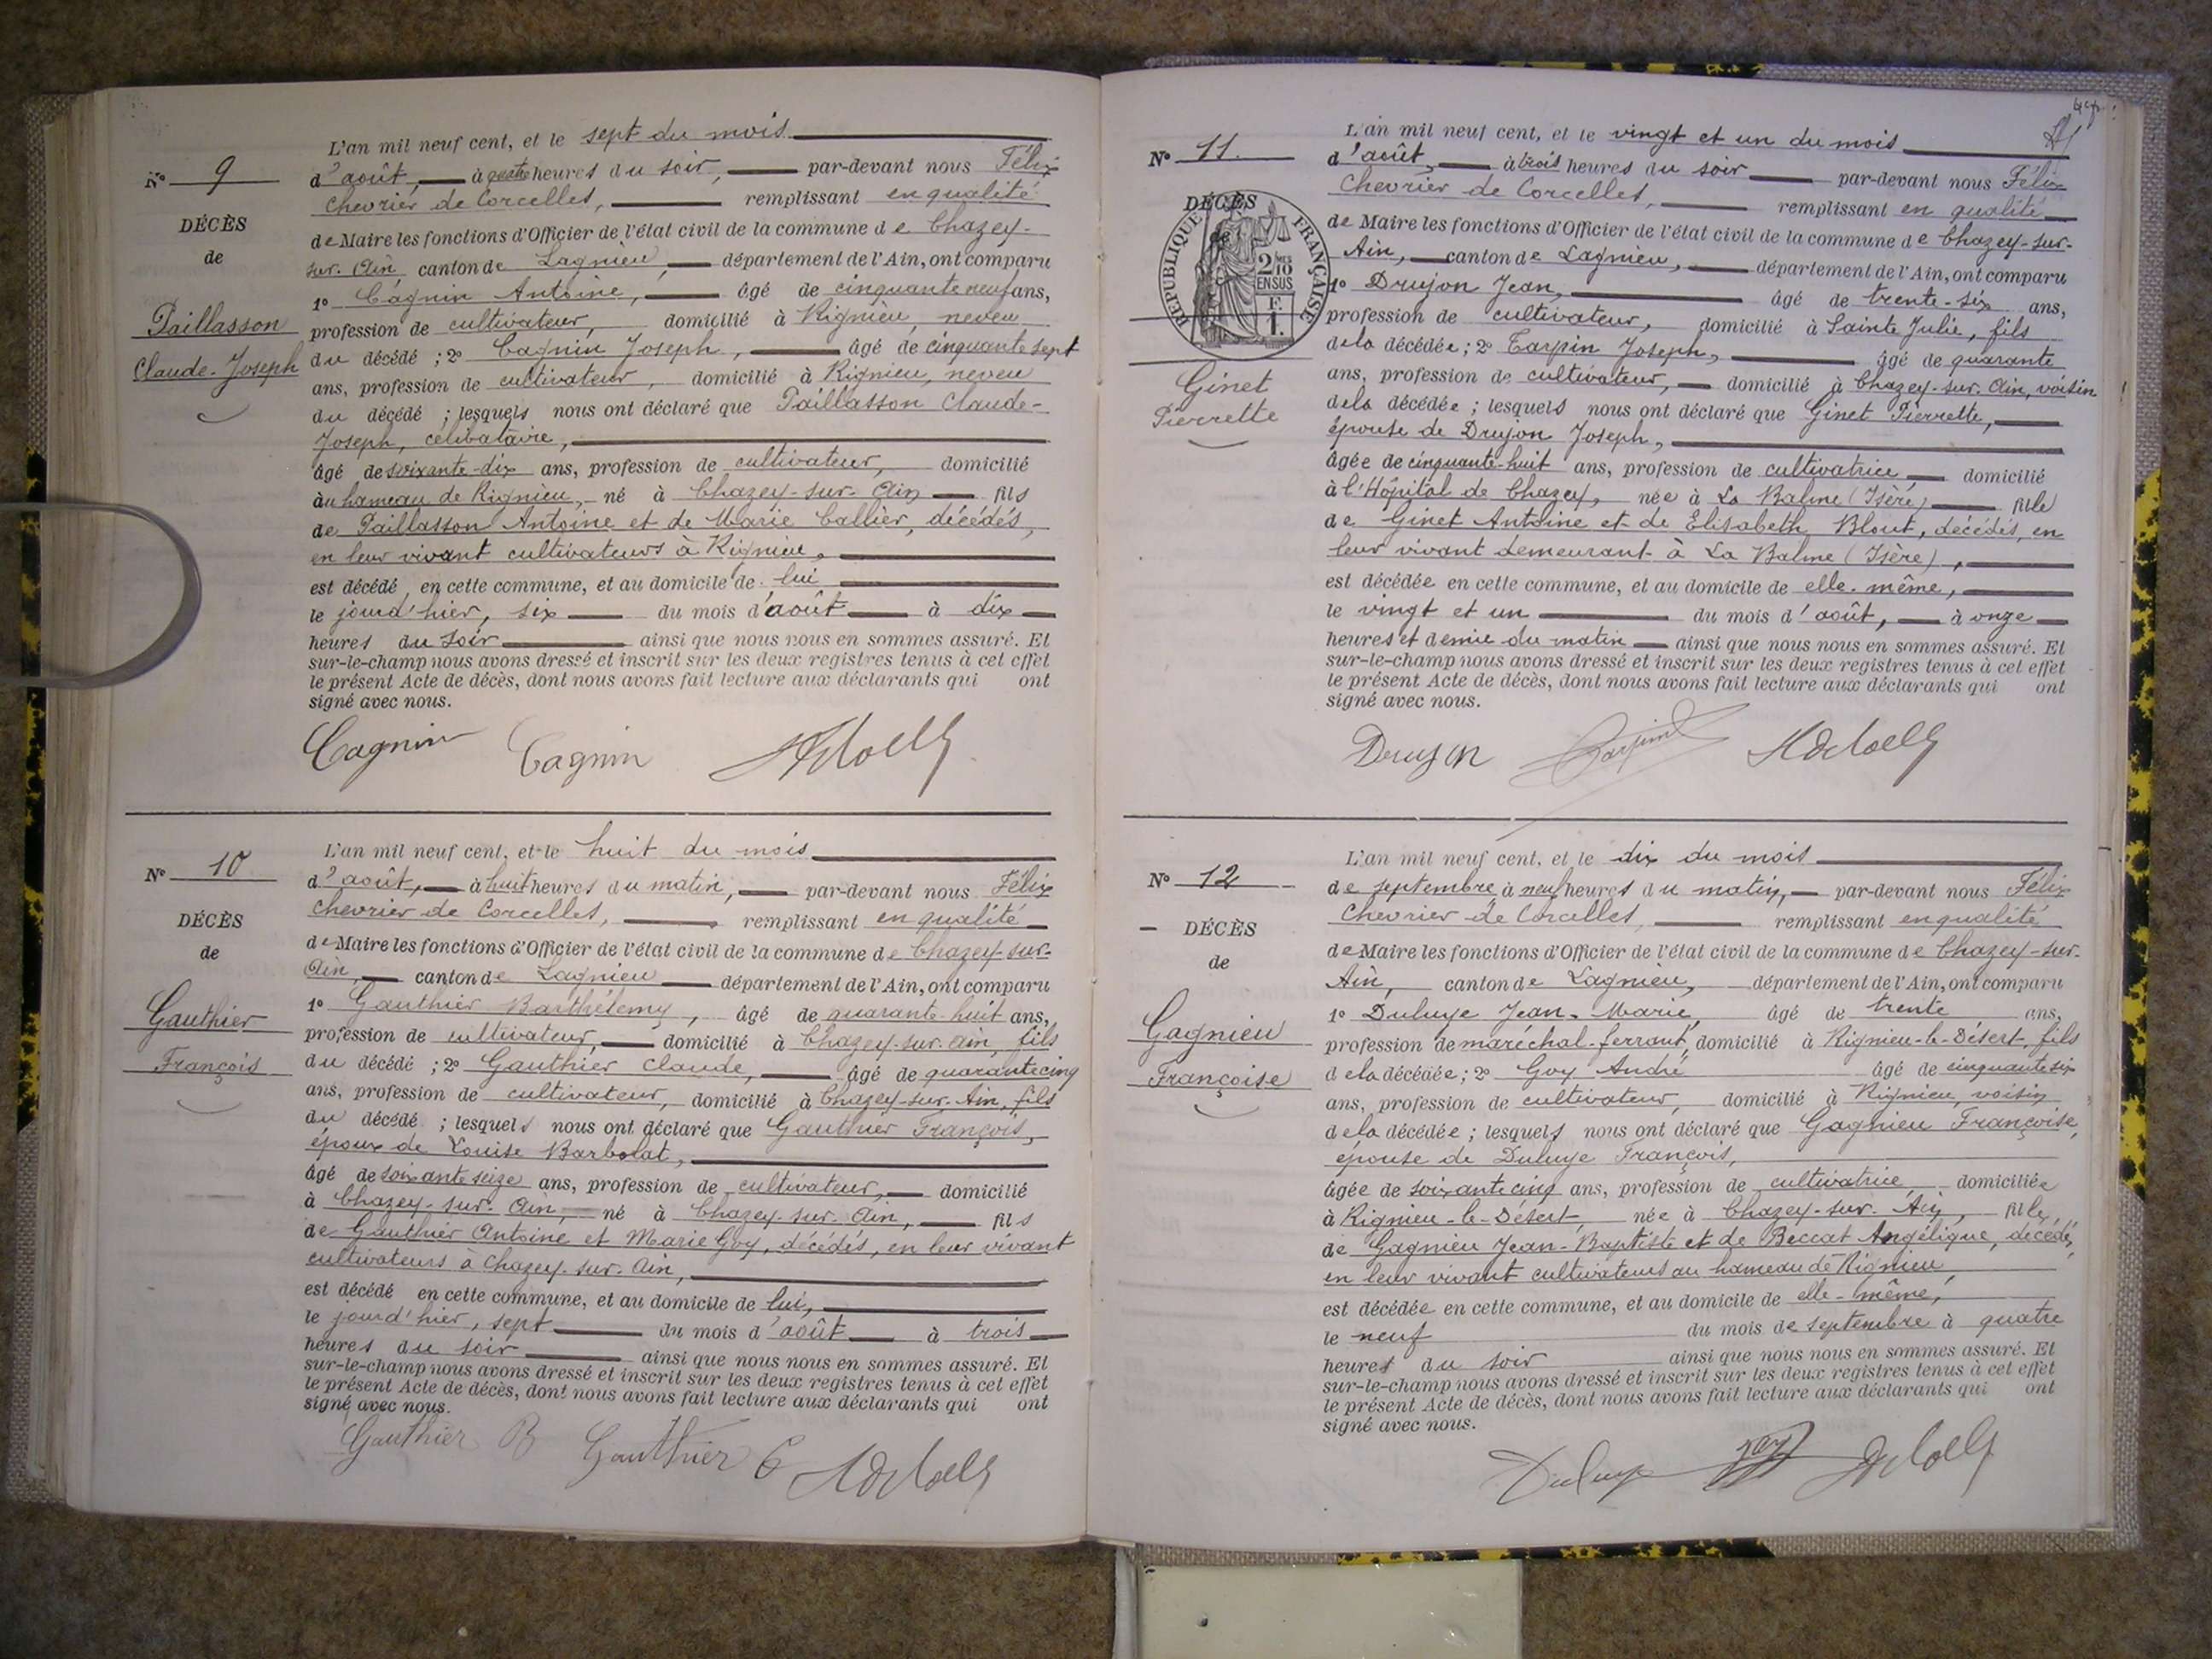 N° 9
DÉCÈS
de
Paillasson
Claude-Joseph
L'an mil neuf cent, et le sept du mois
d'août, à quatre heures du soir, par-devant nous Félix
Chevrier de Corcelles, remplissant en qualité
de Maire les fonctions d'Officier de l'état civil de la commune de Chazey-
sur-Ain canton de Lagnieu, département de l'Ain, ont comparu
1° Cagnin Antoine, âgé de cinquante neuf ans,
profession de cultivateur, domicilié à Rignieu, neveu
du décédé ; 2° Cagnin Joseph, âgé de cinquante sept
ans, profession de cultivateur, domicilié à Rignieu, neveu
du décédé ; lesquels nous ont déclaré que Paillasson Claude-
Joseph, célibataire,
âgé de soixante-dix ans, profession de cultivateur, domicilié
au hameau de Rignieu, né à Chazey-sur-Ain fils
de Paillasson Antoine et de Marie Callier, décédés,
en leur vivant cultivateurs à Rignieu,
est décédé en cette commune, et au domicile de lui
le jourd'hier, six du mois d'août à dix
heures du soir ainsi que nous nous en sommes assuré. Et
sur-le-champ nous avons dressé et inscrit sur les deux registres tenus à cet effet
le présent Acte de décès, dont nous avons fait lecture aux déclarants qui ont
signé avec nous.
Cagnin Cagnin
N° 10
DÉCÈS
de
Gauthier
François
L'an mil neuf cent, et le huit du mois
d'août, à huit heures du matin, par-devant nous Félix
Chevrier de Corcelles, remplissant en qualité
de Maire les fonctions d'Officier de l'état civil de la commune de Chazey-sur-
Ain, canton de Lagnieu département de l'Ain, ont comparu
1° Gauthier Barthélemy, âgé de quarante-huit ans,
profession de cultivateur, domicilié à Chazey-sur-Ain, fils
du décédé ; 2° Gauthier Claude, âgé de quarante cinq
ans, profession de cultivateur, domicilié à Chazey-sur-Ain, fils
du décédé ; lesquels nous ont déclaré que Gauthier François,
époux de Louise Barbolat,
âgé de soixante seize ans, profession de cultivateur, domicilié
à Chazey-sur-Ain, né à Chazey-sur-Ain, fils
de Gauthier Antoine et Marie Goy, décédés, en leur vivant
cultivateurs à Chazey-sur-Ain,
est décédé en cette commune, et au domicile de lui,
le jourd'hier, sept du mois d'août à trois
heures du soir ainsi que nous nous en sommes assuré. Et
sur-le-champ nous avons dressé et inscrit sur les deux registres tenus à cet effet
le présent Acte de décès, dont nous avons fait lecture aux déclarants qui ont
signé avec nous.
Gauthier B Gauthier C
N° 11
DÉCÈS
de
RÉPUBLIQUE FRANÇAISE
2/10 EN SUS
1 F.
Ginet
Pierrette
L'an mil neuf cent, et le vingt et un du mois
d'août, à trois heures du soir par-devant nous Félix
Chevrier de Corcelles, remplissant en qualité
de Maire les fonctions d'Officier de l'état civil de la commune de Chazey-sur-
Ain, canton de Lagnieu, département de l'Ain, ont comparu
1° Drujon Jean, âgé de trente-six ans,
profession de cultivateur, domicilié à Sainte Julie, fils
de la décédée ; 2° Tarpin Joseph, âgé de quarante
ans, profession de cultivateur, domicilié à Chazey-sur-Ain, voisin
de la décédée ; lesquels nous ont déclaré que Ginet Pierrette,
épouse de Drujon Joseph,
âgée de cinquante-huit ans, profession de cultivatrice domicilié
à l'Hôpital de Chazey, née à La Balme (Isère) fille
de Ginet Antoine et de Elisabeth Blout, décédés, en
leur vivant demeurant à La Balme (Isère),
est décédée en cette commune, et au domicile de elle-même,
le vingt et un du mois d'août, à onze
heures et demie du matin ainsi que nous nous en sommes assuré. Et
sur-le-champ nous avons dressé et inscrit sur les deux registres tenus à cet effet
le présent Acte de décès, dont nous avons fait lecture aux déclarants qui ont
signé avec nous.
Drujon Tarpin
N° 12
DÉCÈS
de
Gagnieu
Françoise
L'an mil neuf cent, et le dix du mois
de septembre à neuf heures du matin, par-devant nous Félix
Chevrier de Corcelles, remplissant en qualité
de Maire les fonctions d'Officier de l'état civil de la commune de Chazey-sur-
Ain, canton de Lagnieu, département de l'Ain, ont comparu
1° Duluye Jean-Marie, âgé de trente ans,
profession de maréchal-ferrant, domicilié à Rignieu-le-Désert, fils
de la décédée ; 2° Goy André âgé de cinquante six
ans, profession de cultivateur, domicilié à Rignieu, voisin
de la décédée ; lesquels nous ont déclaré que Gagnieu Françoise,
épouse de Duluye François,
âgée de soixante cinq ans, profession de cultivatrice, domiciliée
à Rignieu-le-Désert, née à Chazey-sur-Ain, fille
de Gagnieu Jean-Baptiste et de Beccat Angélique, décédés,
en leur vivant cultivateurs au hameau de Rignieu,
est décédée en cette commune, et au domicile de elle-même,
le neuf du mois de septembre à quatre
heures du soir ainsi que nous nous en sommes assuré. Et
sur-le-champ nous avons dressé et inscrit sur les deux registres tenus à cet effet
le présent Acte de décès, dont nous avons fait lecture aux déclarants qui ont
signé avec nous.
Duluye Goy